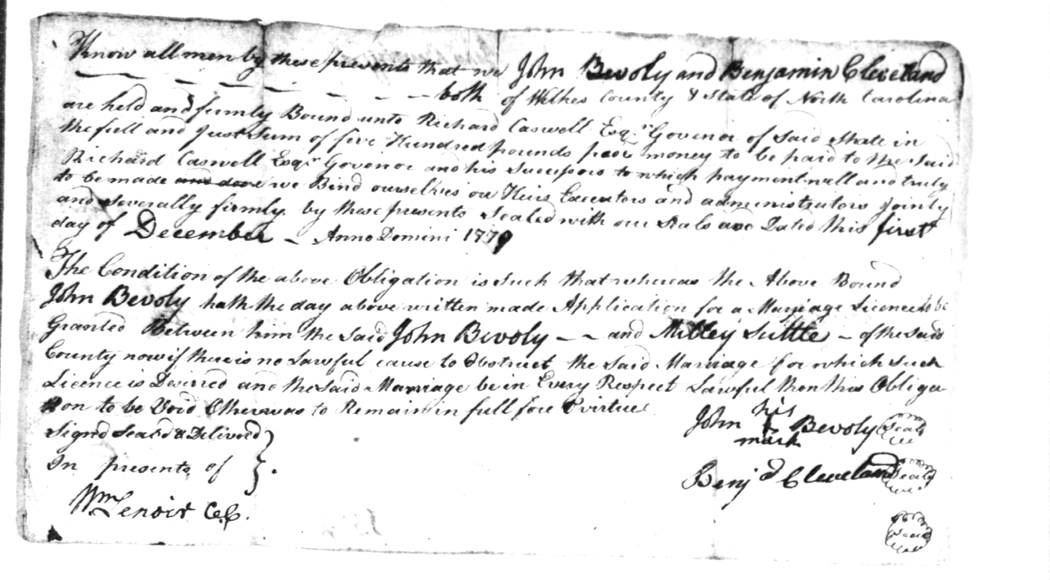 Know all men by these presents that we John Bevoly and Benjamin Cleveland
both of Wilkes County & State of North Carolina
are held and firmly Bound unto Richard Caswell Esqr. Govenor of Said State in
the full and Just Sum of five Hundred pounds money to be paid to the Said
Richard Caswell Esqr. Govenor and his Successors to which payment well and truly
to be made and done we Bind ourselves our Heirs Executors and administrators Jointly
and Severally firmly by these presents Sealed with our Seals and Dated this first
day of December Anno Domini 1779
The Condition of the above Obligation is Such that whereas the Above Bound
John Bevoly hath the day above written made Application for a Marriage Licence to be
Granted Between him the Said John Bevoly -- and Milley Suttle - of the Said
County now if there is no Lawful cause to Obstruct the Said Marriage for which Such
Licence is Desired and the Said Marriage be in Every Respect Lawful then this Obliga
tion to be Void Otherwas to Remain in full force & virtue
his
John Bevoly Seal
mark
Signd Seald & Deliverd
In presents of
Benjn Cleveland Seal
Wm Lenoir C.C.
Seal